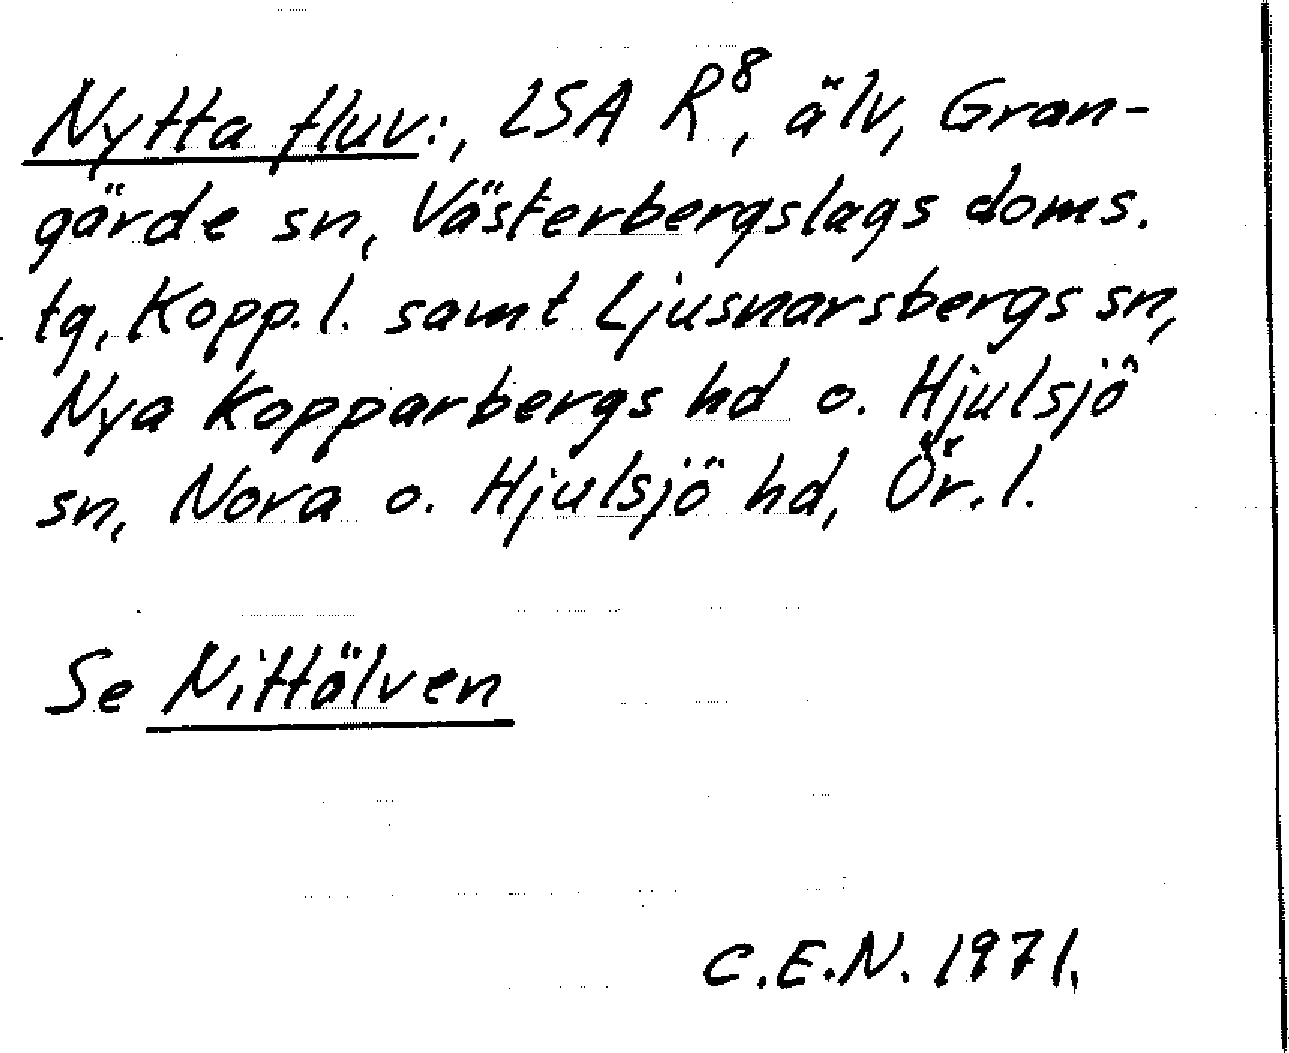 Nytta fluv:, LSA R8, älv, Gran-
gärde sn, Västerbergslags doms.
tg, Kopp.l. samt Ljusnarsbergs sn,
Nya Kopparbergs hd o. Hjulsjö
sn, Nora o. Hjulsjö hd, Ör.l.
Se Nittälven
C.E.N. 1971.